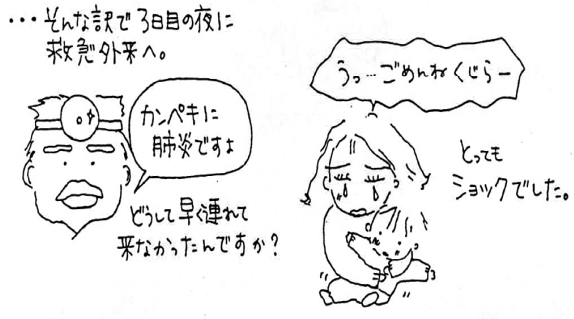 ・・・そんな訳で3日目の夜に
救急外来へ。
カンペキに
肺炎ですよ
どうして早く連れて
来なかったんですか？
うっ・・・ごめんねくじらー
とっても
ショックでした。